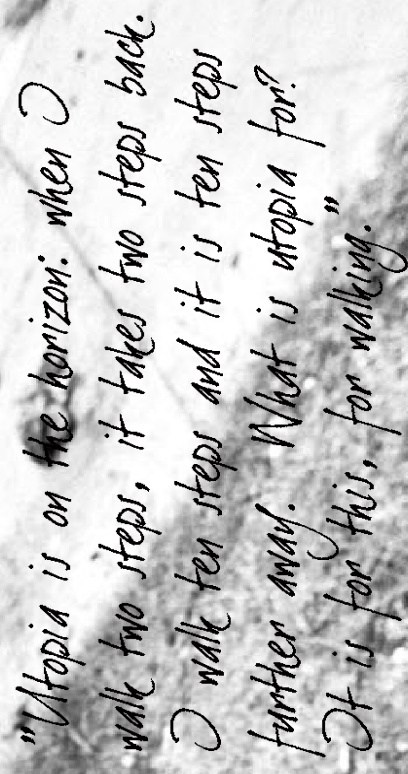 "Utopia is on the horizon: when I
walk two steps, it takes two steps back.
I walk ten steps and it is ten steps
further away. What is utopia for?
It is for this, for walking."